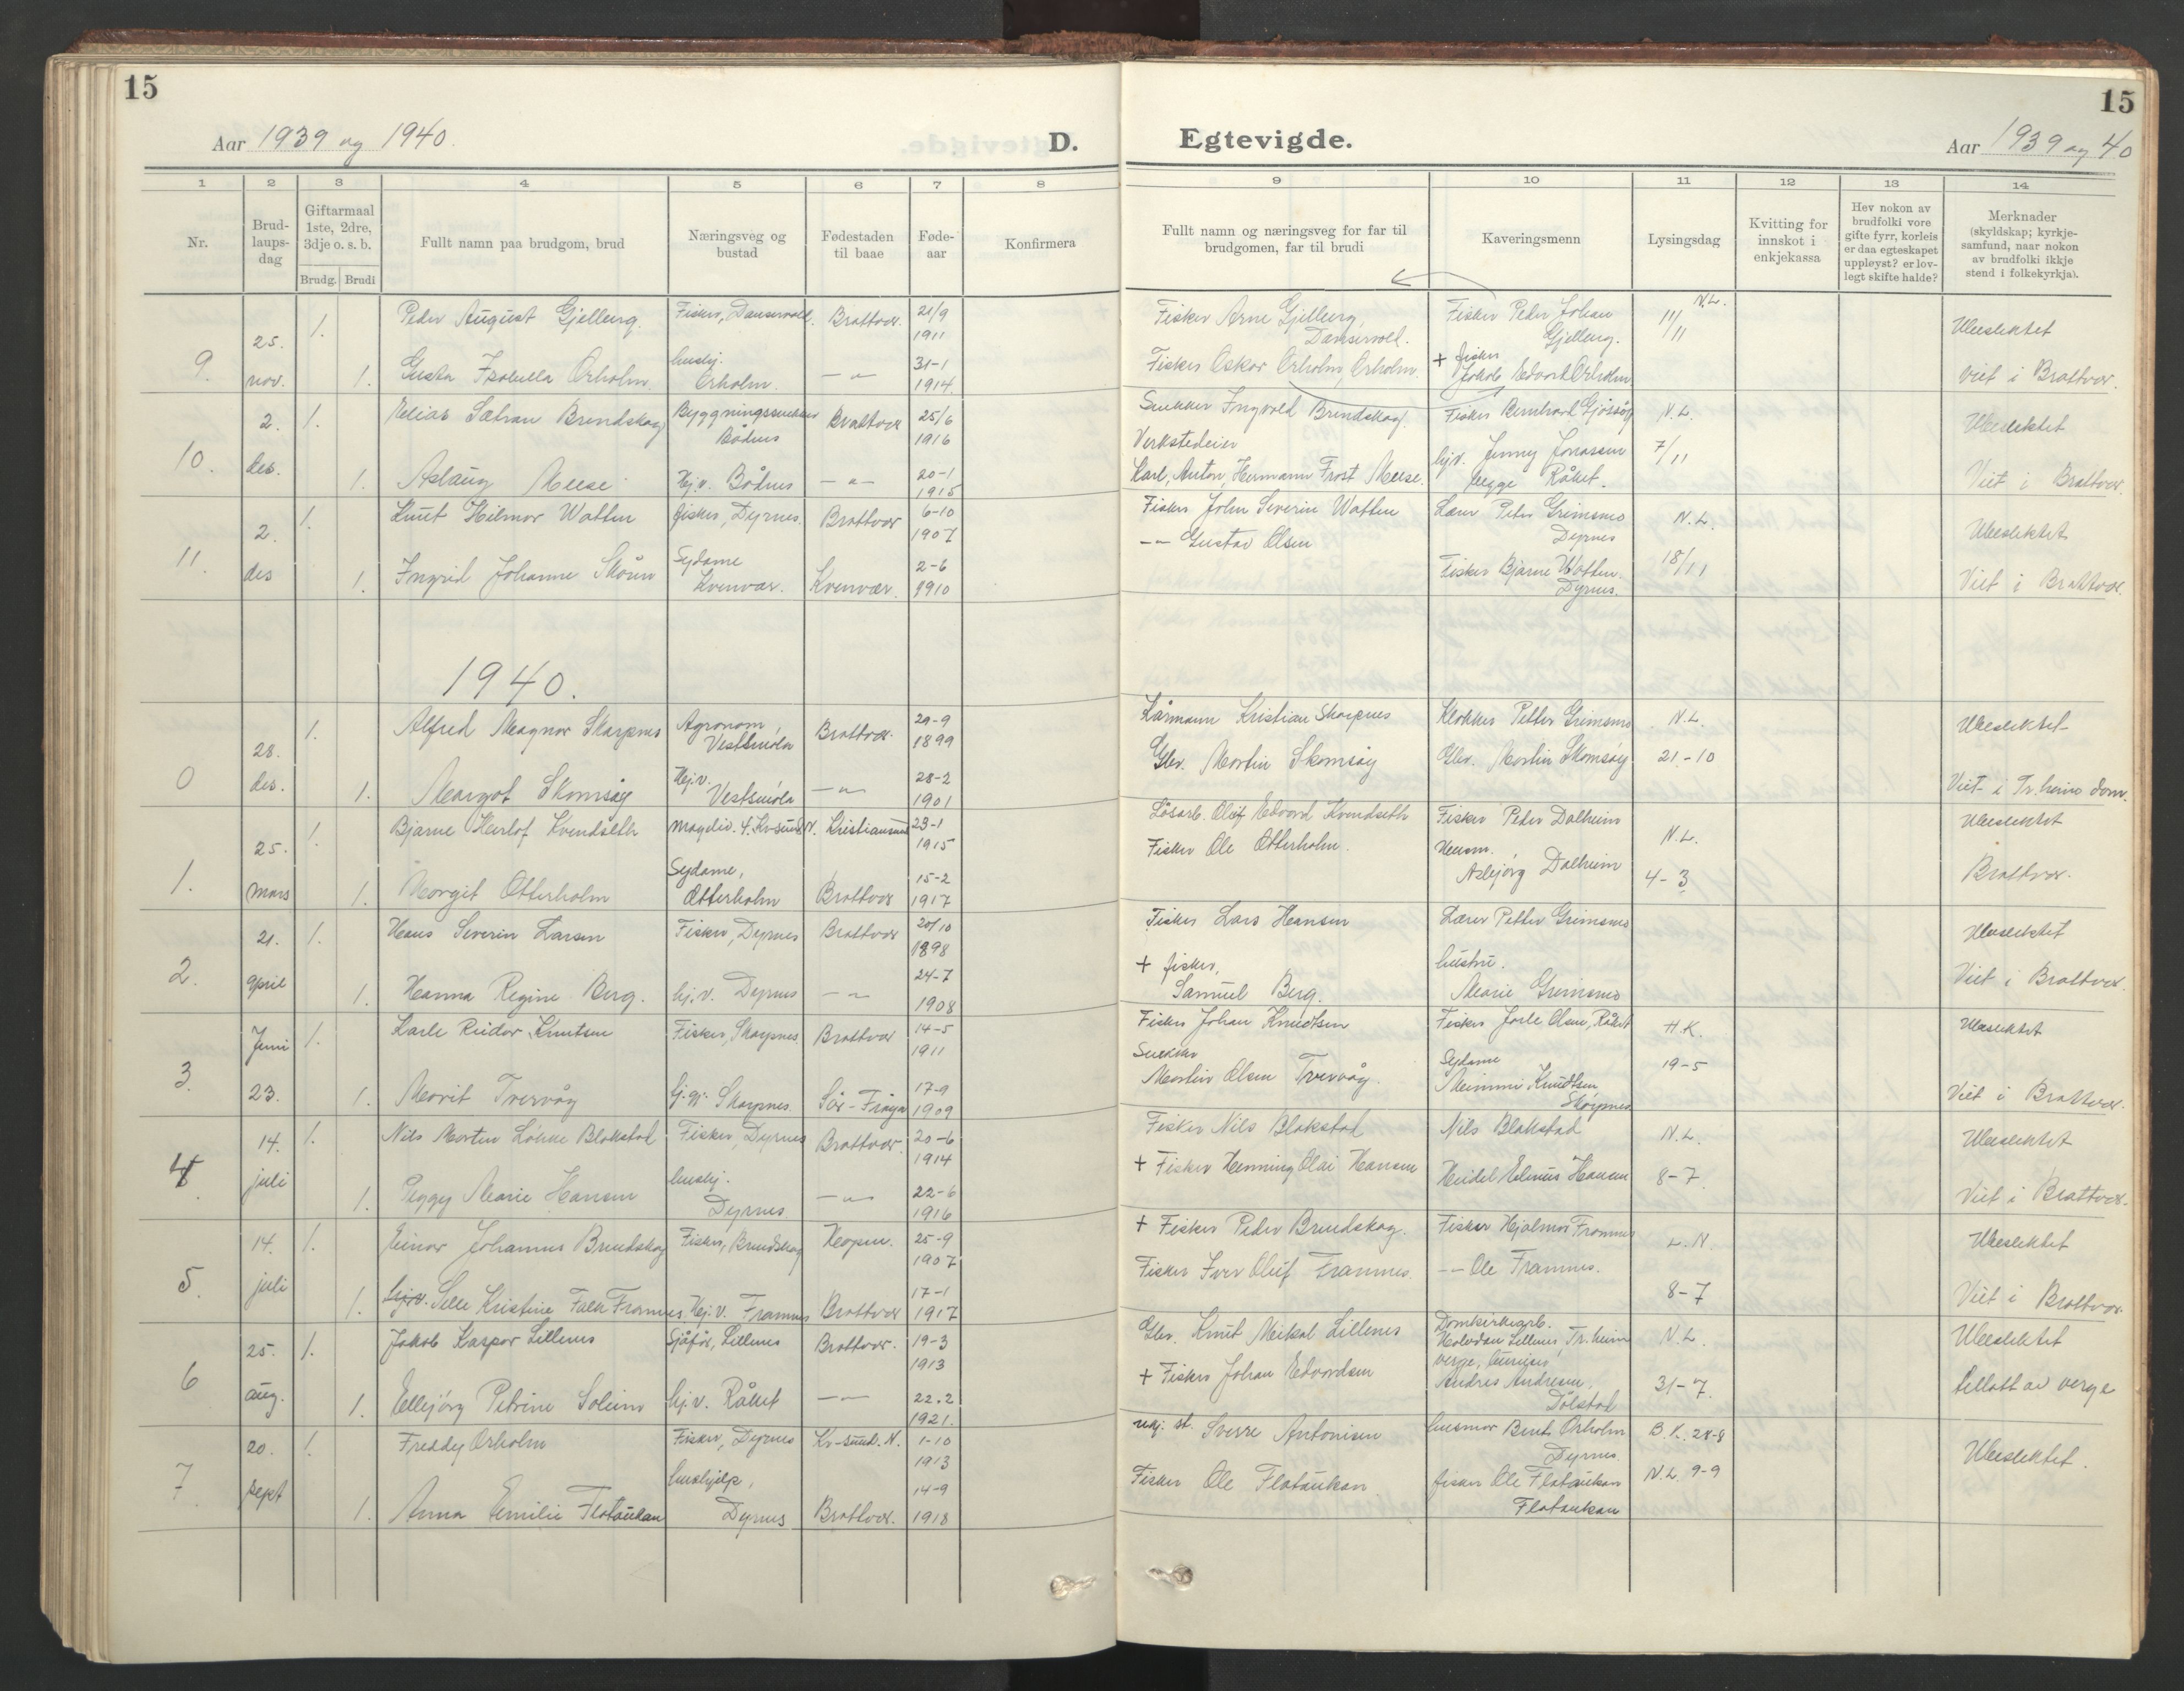 15
Aar 1939 og 1940.
D.
1 2 3 4 5 6 7 8
Nr.
Brud-
laups-
dag
Giftarmaal
1ste, 2dre,
3dje o. s. b.
Brudg. Brudi
Fullt namn paa brudgom, brud
Næringsveg og
bustad
Fødestaden
til baae
Føde-
aar
Konfirmera
9. 25. nov.
1. Peder August Gjellerg. Fisker, Bratvær. 21/9
1911
1. Gusta Isabella Orholm hushj.
Orholm. — " — 31-1
1914.
10. 2. des.
1. Sætran Brendskag Bygningssnekker
Bådnes Brattvær 25/6
1916
1. Aslaug Meese Hj.v. Bådnes — " — 20-1
1915
11. 2. des
1. Knut Hilmar Watten fisker, Dyrnes. Brattvær 6-10
1907
1. Ingrid Johanne Sydame
Kvenvær. Kvenvær. 2-6
1910
1940.
0 28. des.
1. Alfred Magnor Skarpnes Agronom,
Vestsmøla Brattvær. 29-9
1899
1. Margot Skomsøy Hj.v.
Vestsmøla — " — 28-2
1901
1. 25. mars
1. Bjarne Herlof Kvendseth Kristiansund 23-1
1915
1. Margit Otterholm Sydame,
Otterholm Brattvær 15-2
1917
2. 21. april
1. Hans Severin Larsen Fisker, Dyrnes Brattvær 20/10
1898
1. Hanna Regine Berg. hj.v. Dyrnes — " — 24-7
1908
3. Juni 23.
1. Karle Reidar Knutsen Fisker, Skarpnes. Brattvær 14-5
1911
1. Marit Tvervåg Skarpnes. Sør-Frøya 17-9
1909
4. 14. juli
1. Nils Morten Løkke Blakstad Fisker, Dyrnes Brattvær. 20-6
1914
1. Peggy Marie Hansen hushj.
Dyrnes — " — 22-6
1916
5. 14. juli
1. Einar Johannes Brendskag Fisker, Brendskag Hopen. 25-9
1907
1. Selle Kristine Falk Framnes Hj.v. Framnes Brattvær 17-1
1917
6 25. aug.
1. Jakob Kaspar Lillenes Sjåfør, Lillenes Brattvær. 19-3
1913
1. Ellbjørg Petrine Soleim hj.v. Råket — " — 22.2
1921.
7 20. sept
1. Freddy Orholm Fisker, Dyrnes Kr-sund. N. 1-10
1913
1. Anna Emilie Flataukan hushjelp,
Dyrnes Brattvær. 14-9
1918
15
Egtevigde.
Aar 1939 og 40
9 10 11 12 13 14
Fullt namn og næringsveg for far til
brudgomen, far til brudi
Kaveringsmenn
Lysingsdag
Kvitting for
innskot i
enkjekassa
Hev nokon av
brudfolki vore
gifte fyrr, korleis
er daa egteskapet
uppløyst? er lov-
legt skifte halde?
Merknader
(skyldskap; kyrkje-
samfund, naar nokon
av brudfolki ikkje
stend i folkekyrkja).
Fisker Arne Gjellerg, Fisker Peder Johan
Gjellerg. N.L.
11/11 Ubeslektet
Fisker Oskar Orholm, Orholm. + fisker
Jakob Edvard Orholm viet i Brattvær.
Snekker Ingvald Brendskag. Fisker Bernhard N.L. Ubeslektet
Verkstedeier
Karl, Anton, Hermann Frost Meese. hj.v. Jenny Jonassen
begge Råket. 7/11 Viet i Brattvær.
Fisker John Severin Watten Lærer Peter Grimsmo
Dyrnes N.L. Ubeslektet
— " — Gustav Olsen Fisker Bjarne Watten.
Dyrnes. 18/11 Viet i Brattvær.
Kårmann Kristian Skarpnes Klokker Petter Grimsmo N.L. Ubeslektet
Gbr. Martin Skomsøy Gbr. Martin Skomsøy. 21-10 Viet i Tr.heims dom.
Løsarb. Oluf Edvard Kvendseth Fisker Peder Dalheim N.L. Ubeslektet
Fisker Ole Otterholm. Asbjørg Dalheim 4-3 Brattvær.
Fisker Lars Hansen Lærer Petter Grimsmo Ubeslektet
+ fisker,
Samuel Berg. hustru.
Marie Grimsmo Viet i Brattvær.
Fisker Johan Knudtsen Fisker Jarle Olsen, Råket H.K. Ubeslektet
Snekker
Martin Olsen Tvervåg. Sydame
Mimmi Knudtsen
Skarpnes 19-5 Viet i Brattvær.
Fisker Nils Blakstad Nils Blakstad N.L. Ubeslektet
+ Fisker Henning Olai Hansen Heidel Elenus Hansen 8-7. Viet i Brattvær.
+ Fisker Peder Brendskag. Fisker Hjalmar Framnes L.N. Ubeslektet
Fisker Iver Oluf Framnes. — " — Ole Framnes. 8-7 Viet i Brattvær.
Gbr. Knut Mikal Lillenes Domkirkearb.
Halvdan Lillenes, Tr.heim N.L. Ubeslektet
+ Fisker Johan Edvardsen verge,
Andres Andresen,
31-7. tillatt av verge
Sverre Antonisen husmor Berit Orholm
Dyrnes. B.K. 28-8 Ubeslektet.
Fisker Ole Flataukan fisker Ole Flataukan
Flataukan N.L. 9-9